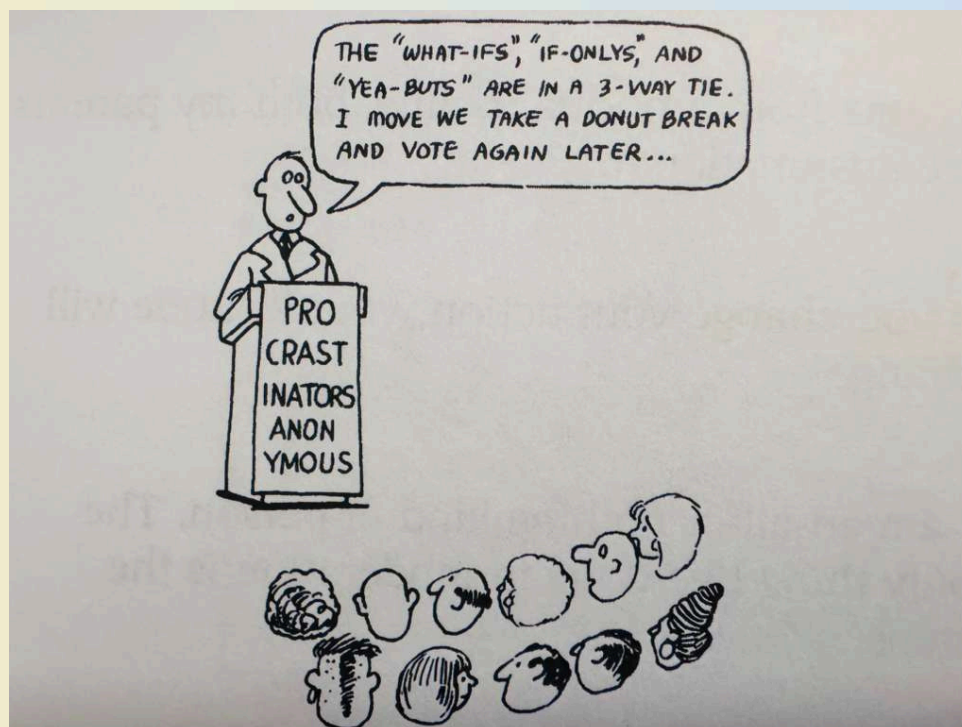 THE "WHAT-IFS", "IF-ONLYS," AND
"YEA-BUTS" ARE IN A 3-WAY TIE.
I MOVE WE TAKE A DONUT BREAK
AND VOTE AGAIN LATER...
PRO
CRAST
INATORS
ANON
YMOUS